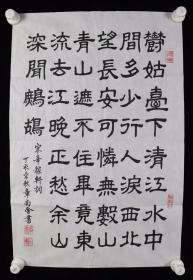 鬱姑臺下清江水中
間多少行人淚西北
望長安可憐無數山
青山遮不住畢竟東
流去江晚正愁余山
深聞鷓鴣
宋辛稼軒詞
書